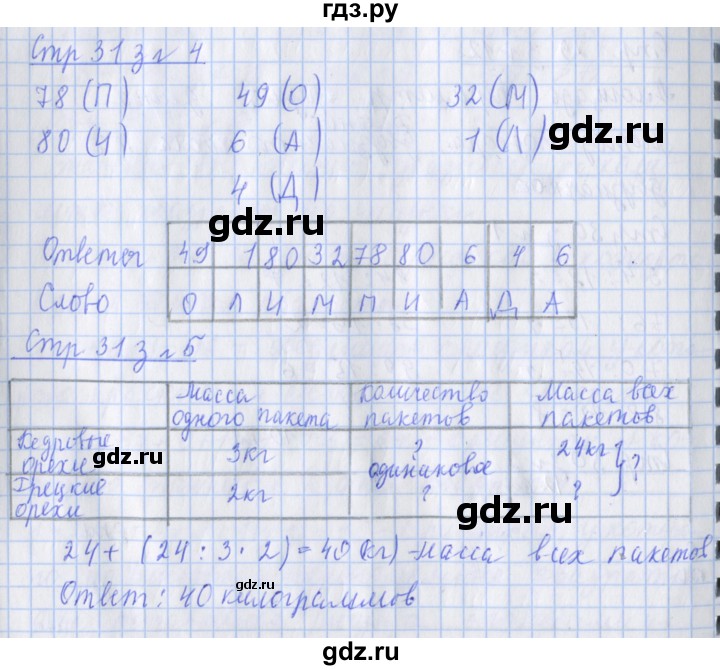 гдз.ру
Стр 31 з № 4
78 (П) 49 (О) 32 (М)
gdz.ru
80 (И) 6 (А) 1 (Л)
4 (Д)
gdz.ru
Ответы 49 1 80 32 78 80 6 4 6
Слово О Л И М П И А Д А
Стр 31 з № 5
gdz.ru
Масса одного пакета
Количество пакетов
Масса всех пакетов
Кедровые орехи 3кг ? 24кг
gdz.ru
одинаковое ?
Грецкие орехи 2кг ? ?
24 + (24 : 3 · 2) = 40 (кг) - масса всех пакетов
gdz.ru
Ответ: 40 килограммов
gdz.ru